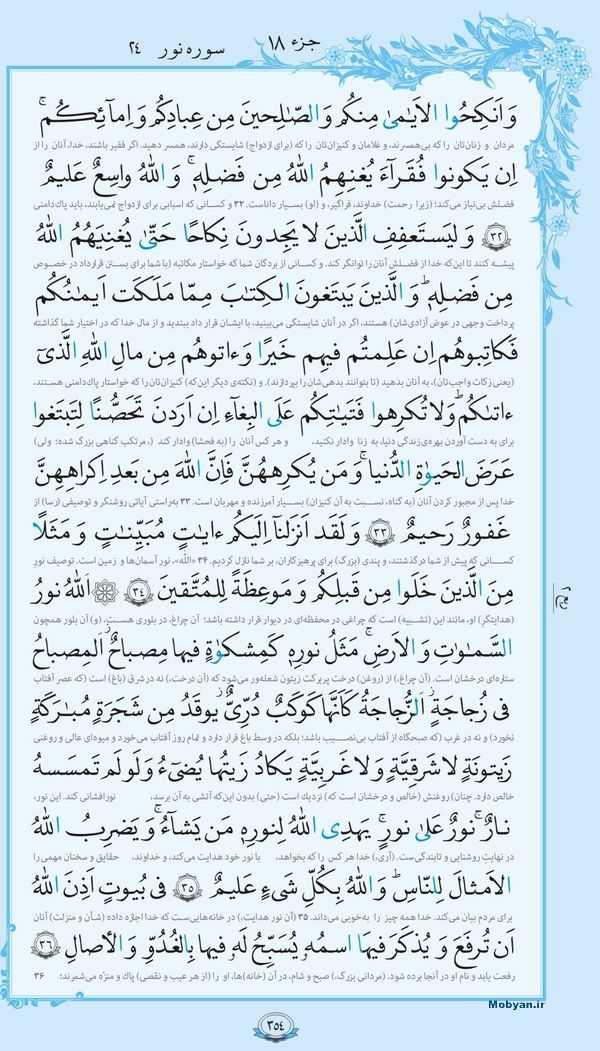 جزء ۱۸
سوره نور ۲۴
وَ اَنكِحُوا الاَيٰمىٰ مِنكُم وَ الصّٰلِحينَ مِن عِبادِكُم وَ اِمآئِكُم ۚ
مردان و زنان‌تان را که بی‌همسرند، و غلامان و کنیزان‌تان را که (برای ازدواج) شایستگی دارند، همسر دهید. اگر فقیر باشند، خدا، آنان را از
اِن يَكونوا فُقَرآءَ يُغنِهِمُ اللّٰهُ مِن فَضلِهٖ ۗ وَ اللّٰهُ واسِعٌ عَليمٌ
فضلش بی‌نیاز می‌کند؛ (زیرا رحمت) خداوند، فراگیر، و (او) بسیار داناست. ۳۲ و کسانی که اسبابی برای ازدواج نمی‌یابند، باید پاک‌دامنی
﴿۳۲﴾ وَ ليَستَعفِفِ الَّذينَ لا يَجِدونَ نِكاحًا حَتّىٰ يُغنِيَهُمُ اللّٰهُ
پیشه کنند تا این‌که خدا از فضلش آنان را توانگر کند. و کسانی از بردگان شما که خواستار مکاتبه (با شما برای بستن قرارداد در خصوص
مِن فَضلِهٖ ۗ وَ الَّذينَ يَبتَغونَ الكِتٰبَ مِمّا مَلَكَت اَيمٰنُكُم
پرداخت وجهی در عوض آزادی‌شان) هستند، اگر در آنان شایستگی می‌بینید، با ایشان قرار داد ببندید و از مال خدا که در اختیار شما گذاشته
فَكاتِبوهُم اِن عَلِمتُم فيهِم خَيرًا وَ ءاتوهُم مِن مالِ اللّٰهِ الَّذىٓ
(یعنی زکات واجب‌تان)، به آنان بدهید (تا بتوانند بدهی‌شان را بپردازند). و (نکته‌ی دیگر این‌که) کنیزان‌تان را که خواستار پاک‌دامنی هستند،
ءاتىٰكُم ۚ وَ لا تُكرِهوا فَتَيٰتِكُم عَلَى البِغآءِ اِن اَرَدنَ تَحَصُّنًا لِتَبتَغوا
برای به دست آوردن بهره‌ی زندگی دنیا، به زنا وادار نکنید، و هر کس آنان را (به فحشا) وادار کند (، مرتکب گناهی بزرگ شده؛ ولی)
عَرَضَ الحَيوٰةِ الدُّنيا ۚ وَ مَن يُكرِههُنَّ فَاِنَّ اللّٰهَ مِن بَعدِ اِكراهِهِنَّ
خدا پس از مجبور کردن آنان (به گناه، نسبت به آن کنیزان) بسیار آمرزنده و مهربان است. ۳۳ به‌راستی آیاتی روشنگر و توصیفی (رسا) از
غَفورٌ رَحيمٌ ﴿۳۳﴾ وَ لَقَد اَنزَلنآ اِلَيكُم ءايٰتٍ مُبَيِّنٰتٍ وَ مَثَلًا
کسانی که پیش از شما درگذشتند، و پندی (بزرگ) برای پرهیزکاران، بر شما نازل کردیم. ۳۴ «الله»، نور آسمان‌ها و زمین است. توصیف نور
مِنَ الَّذينَ خَلَوا مِن قَبلِكُم وَ مَوعِظَةً لِلمُتَّقينَ ﴿۳۴﴾ ۞ اَللّٰهُ نورُ
(هدایتگر) او، مانند این (تشبیه) است که چراغی در محفظه‌ای در دیوار قرار داشته باشد؛ آن چراغ، در بلوری هست، (و) آن بلور همچون
السَّمٰوٰتِ وَ الاَرضِ ۚ مَثَلُ نورِهٖ كَمِشكوٰةٍ فيها مِصباحٌ ۖ اَلمِصباحُ
ستاره‌ای درخشان است. (آن چراغ،) از (روغن) درخت پربرکت زیتون شعله‌ور می‌شود که (آن درخت،) نه در شرق (باغ) است (که عصر آفتاب
فى زُجاجَةٍ ۖ اَلزُّجاجَةُ كَاَنَّها كَوكَبٌ دُرِّىٌّ يوقَدُ مِن شَجَرَةٍ مُبٰرَكَةٍ
نخورد) و نه در غرب (که صبحگاه از آفتاب بی‌نصیب باشد؛ بلکه در وسط باغ قرار دارد و تمام روز آفتاب می‌خورد و میوه‌ای عالی و روغنی
زَيتونَةٍ لا شَرقِيَّةٍ وَ لا غَربِيَّةٍ يَكادُ زَيتُها يُضىٓءُ وَ لَو لَم تَمسَسهُ
خالص دارد. چنان) روغنش (خالص و درخشان است که) نزدیک است (حتی) بدون این‌که آتشی به آن برسد، نورافشانی کند. این نور،
نارٌ ۚ نورٌ عَلىٰ نورٍ ۗ يَهدِى اللّٰهُ لِنورِهٖ مَن يَشآءُ ۚ وَ يَضرِبُ اللّٰهُ
در نهایت روشنایی و تابندگی‌ست. (آری،) خدا هر کس را که بخواهد، با نور خود هدایت می‌کند، و خداوند، حقایق و سخنان مهمی را
الاَمثالَ لِلنّاسِ ۗ وَ اللّٰهُ بِكُلِّ شَىءٍ عَليمٌ ﴿۳۵﴾ فى بُيوتٍ اَذِنَ اللّٰهُ
برای مردم بیان می‌کند. خدا همه چیز را به‌خوبی می‌داند. ۳۵ (آن نور هدایت،) در خانه‌هایی‌ست که خدا اجازه داده (شأن و منزلت) آنان
اَن تُرفَعَ وَ يُذكَرَ فيهَا اسمُهٗ يُسَبِّحُ لَهٗ فيها بِالغُدُوِّ وَ الاٰصالِ ﴿۳۶﴾
رفعت یابد و نام او در آنجا برده شود. (مردانی بزرگ،) صبح و شام، در آن (خانه‌ها)، او را (از هر عیب و نقصی) پاک و منزّه می‌شمرند؛ ۳۶
۳۵۴
Mobyan.ir